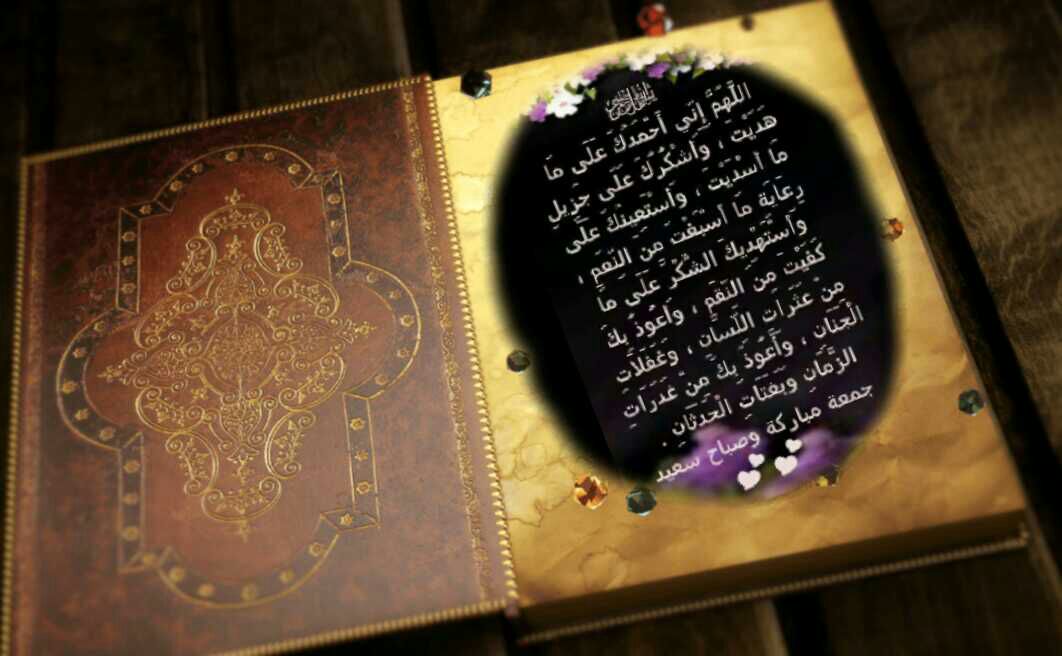 اللَّهُمَّ إِنِّي أَحْمَدُكَ عَلَى مَا
هَدَيْتَ ، وَأَشْكُرُكَ عَلَى جَزِيلِ
مَا أَسْدَيْتَ ، وَأَسْتَعِينُكَ عَلَى
رِعَايَةِ مَا أَسْبَغْتَ مِنَ النِّعَمِ ،
وَأَسْتَهْدِيكَ الشُّكْرَ عَلَى مَا
كَفَيْتَ مِنَ النِّقَمِ ، وَأَعُوذُ بِكَ
مِنْ عَثَرَاتِ اللِّسَانِ ، وَغَفَلَاتِ
الْجَنَانِ ، وَأَعُوذُ بِكَ مِنْ غَدَرَاتِ
الزَّمَانِ وَبَغَتَاتِ الْحَدَثَانِ .
جمعة مباركة وصباح سعيد